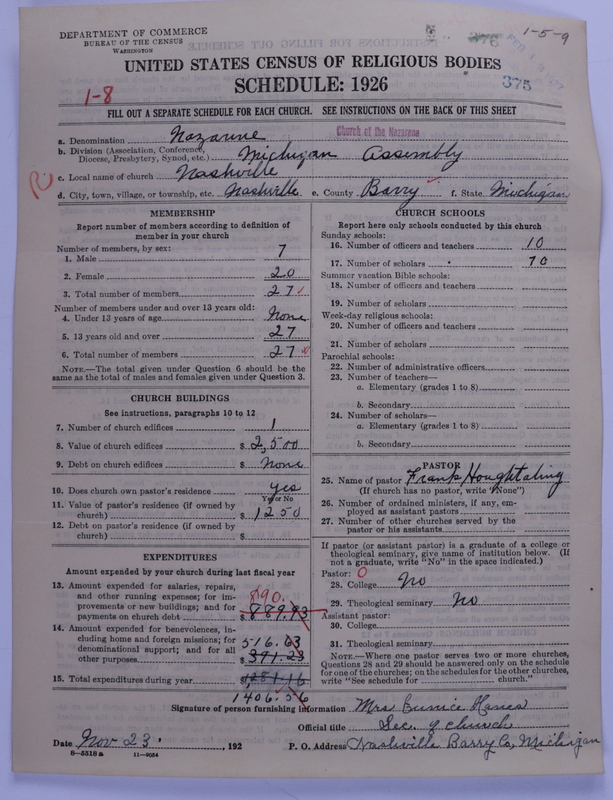 DEPARTMENT OF COMMERCE
BUREAU OF THE CENSUS
WASHINGTON
376
1-5-9
375
UNITED STATES CENSUS OF RELIGIOUS BODIES
SCHEDULE: 1926
1-8
FILL OUT A SEPARATE SCHEDULE FOR EACH CHURCH. SEE INSTRUCTIONS ON THE BACK OF THIS SHEET
Church of the Nazarene
a. Denomination Nazarine
b. Division (Association, Conference, Diocese, Presbytery, Synod, etc.) Michigan Assembly
c. Local name of church Nashville
d. City, town, village, or township, etc. Nashville e. County Barry f. State Michigan
MEMBERSHIP
Report number of members according to definition of
member in your church
Number of members, by sex:
1. Male 7
2. Female 20
3. Total number of members 27
Number of members under and over 13 years old:
4. Under 13 years of age None
5. 13 years old and over 27
6. Total number of members 27
NOTE.—The total given under Question 6 should be
same as the total of males and females given under Question 3.
CHURCH BUILDINGS
See instructions, paragraphs 10 to 12
7. Number of church edifices 1
8. Value of church edifices $ 2,500
9. Debt on church edifices $ None
10. Does church own pastor's residence yes
Yes or No
11. Value of pastor's residence (if owned by
church) $ 1250
12. Debt on pastor's residence (if owned by
church) $
EXPENDITURES
Amount expended by your church during last fiscal year
13. Amount expended for salaries, repairs,
and other running expenses; for im-
provements or new buildings; and for
payments on church debt 890. $ 889.93
14. Amount expended for benevolences, in-
cluding home and foreign missions; for
denominational support; and for all
other purposes 516.63 $ 391.23
15. Total expenditures during year $ 1281.16
1406.56
CHURCH SCHOOLS
Report here only schools conducted by this church
Sunday schools:
16. Number of officers and teachers 10
17. Number of scholars 70
Summer vacation Bible schools:
18. Number of officers and teachers
19. Number of scholars
Week-day religious schools:
20. Number of officers and teachers
21. Number of scholars
Parochial schools:
22. Number of administrative officers
23. Number of teachers—
a. Elementary (grades 1 to 8)
b. Secondary
24. Number of scholars—
a. Elementary (grades 1 to 8)
b. Secondary
PASTOR
25. Name of pastor Frank Houghtaling
(If church has no pastor, write "None")
26. Number of ordained ministers, if any, em-
ployed as assistant pastors
27. Number of other churches served by the
pastor or his assistants
If pastor (or assistant pastor) is a graduate of a college or
theological seminary, give name of institution below. (If
not a graduate, write "No" in the space indicated.)
Pastor: 0
28. College No
29. Theological seminary No
Assistant pastor:
30. College
31. Theological seminary
NOTE.—Where one pastor serves two or more churches,
Questions 28 and 29 should be answered only on the schedule
for one of the churches; on the schedules for the other churches,
write "See schedule for church."
Signature of person furnishing information Mrs Eunice
Official title Sec. of church
Date Nov 23, 192 P. O. Address Nashville Barry Co, Michigan
8—5518 a 11—9034